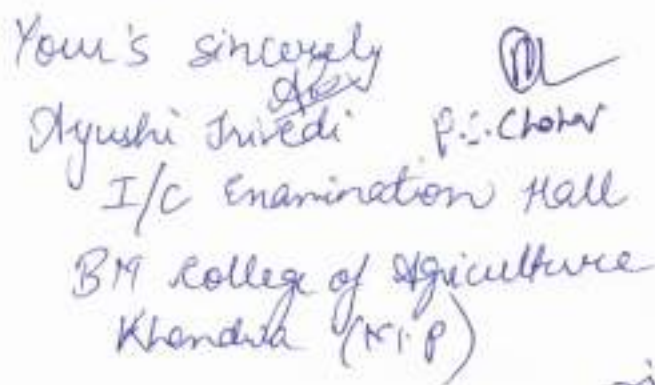 Your's sincerely
Ayushi Trivedi P.S. Chohar
I/C Enamination Hall
BM College of Agriculture
Khandwa (M.P)